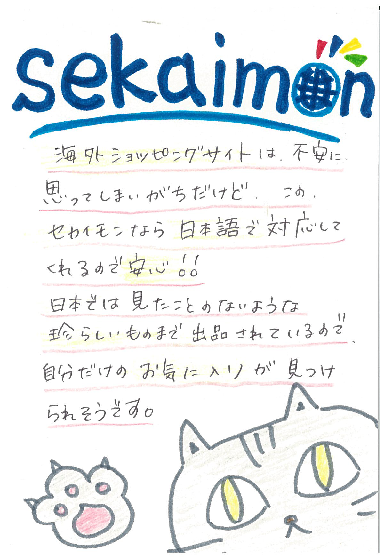 sekaimon
海外ショッピングサイトは、不安に
思ってしまいがちだけど、この、
セカイモンなら日本語で対応して
くれるので安心!!
日本では見たことのないような
珍らしいものまで出品されているので、
自分だけのお気に入りが見つけ
られそうです。